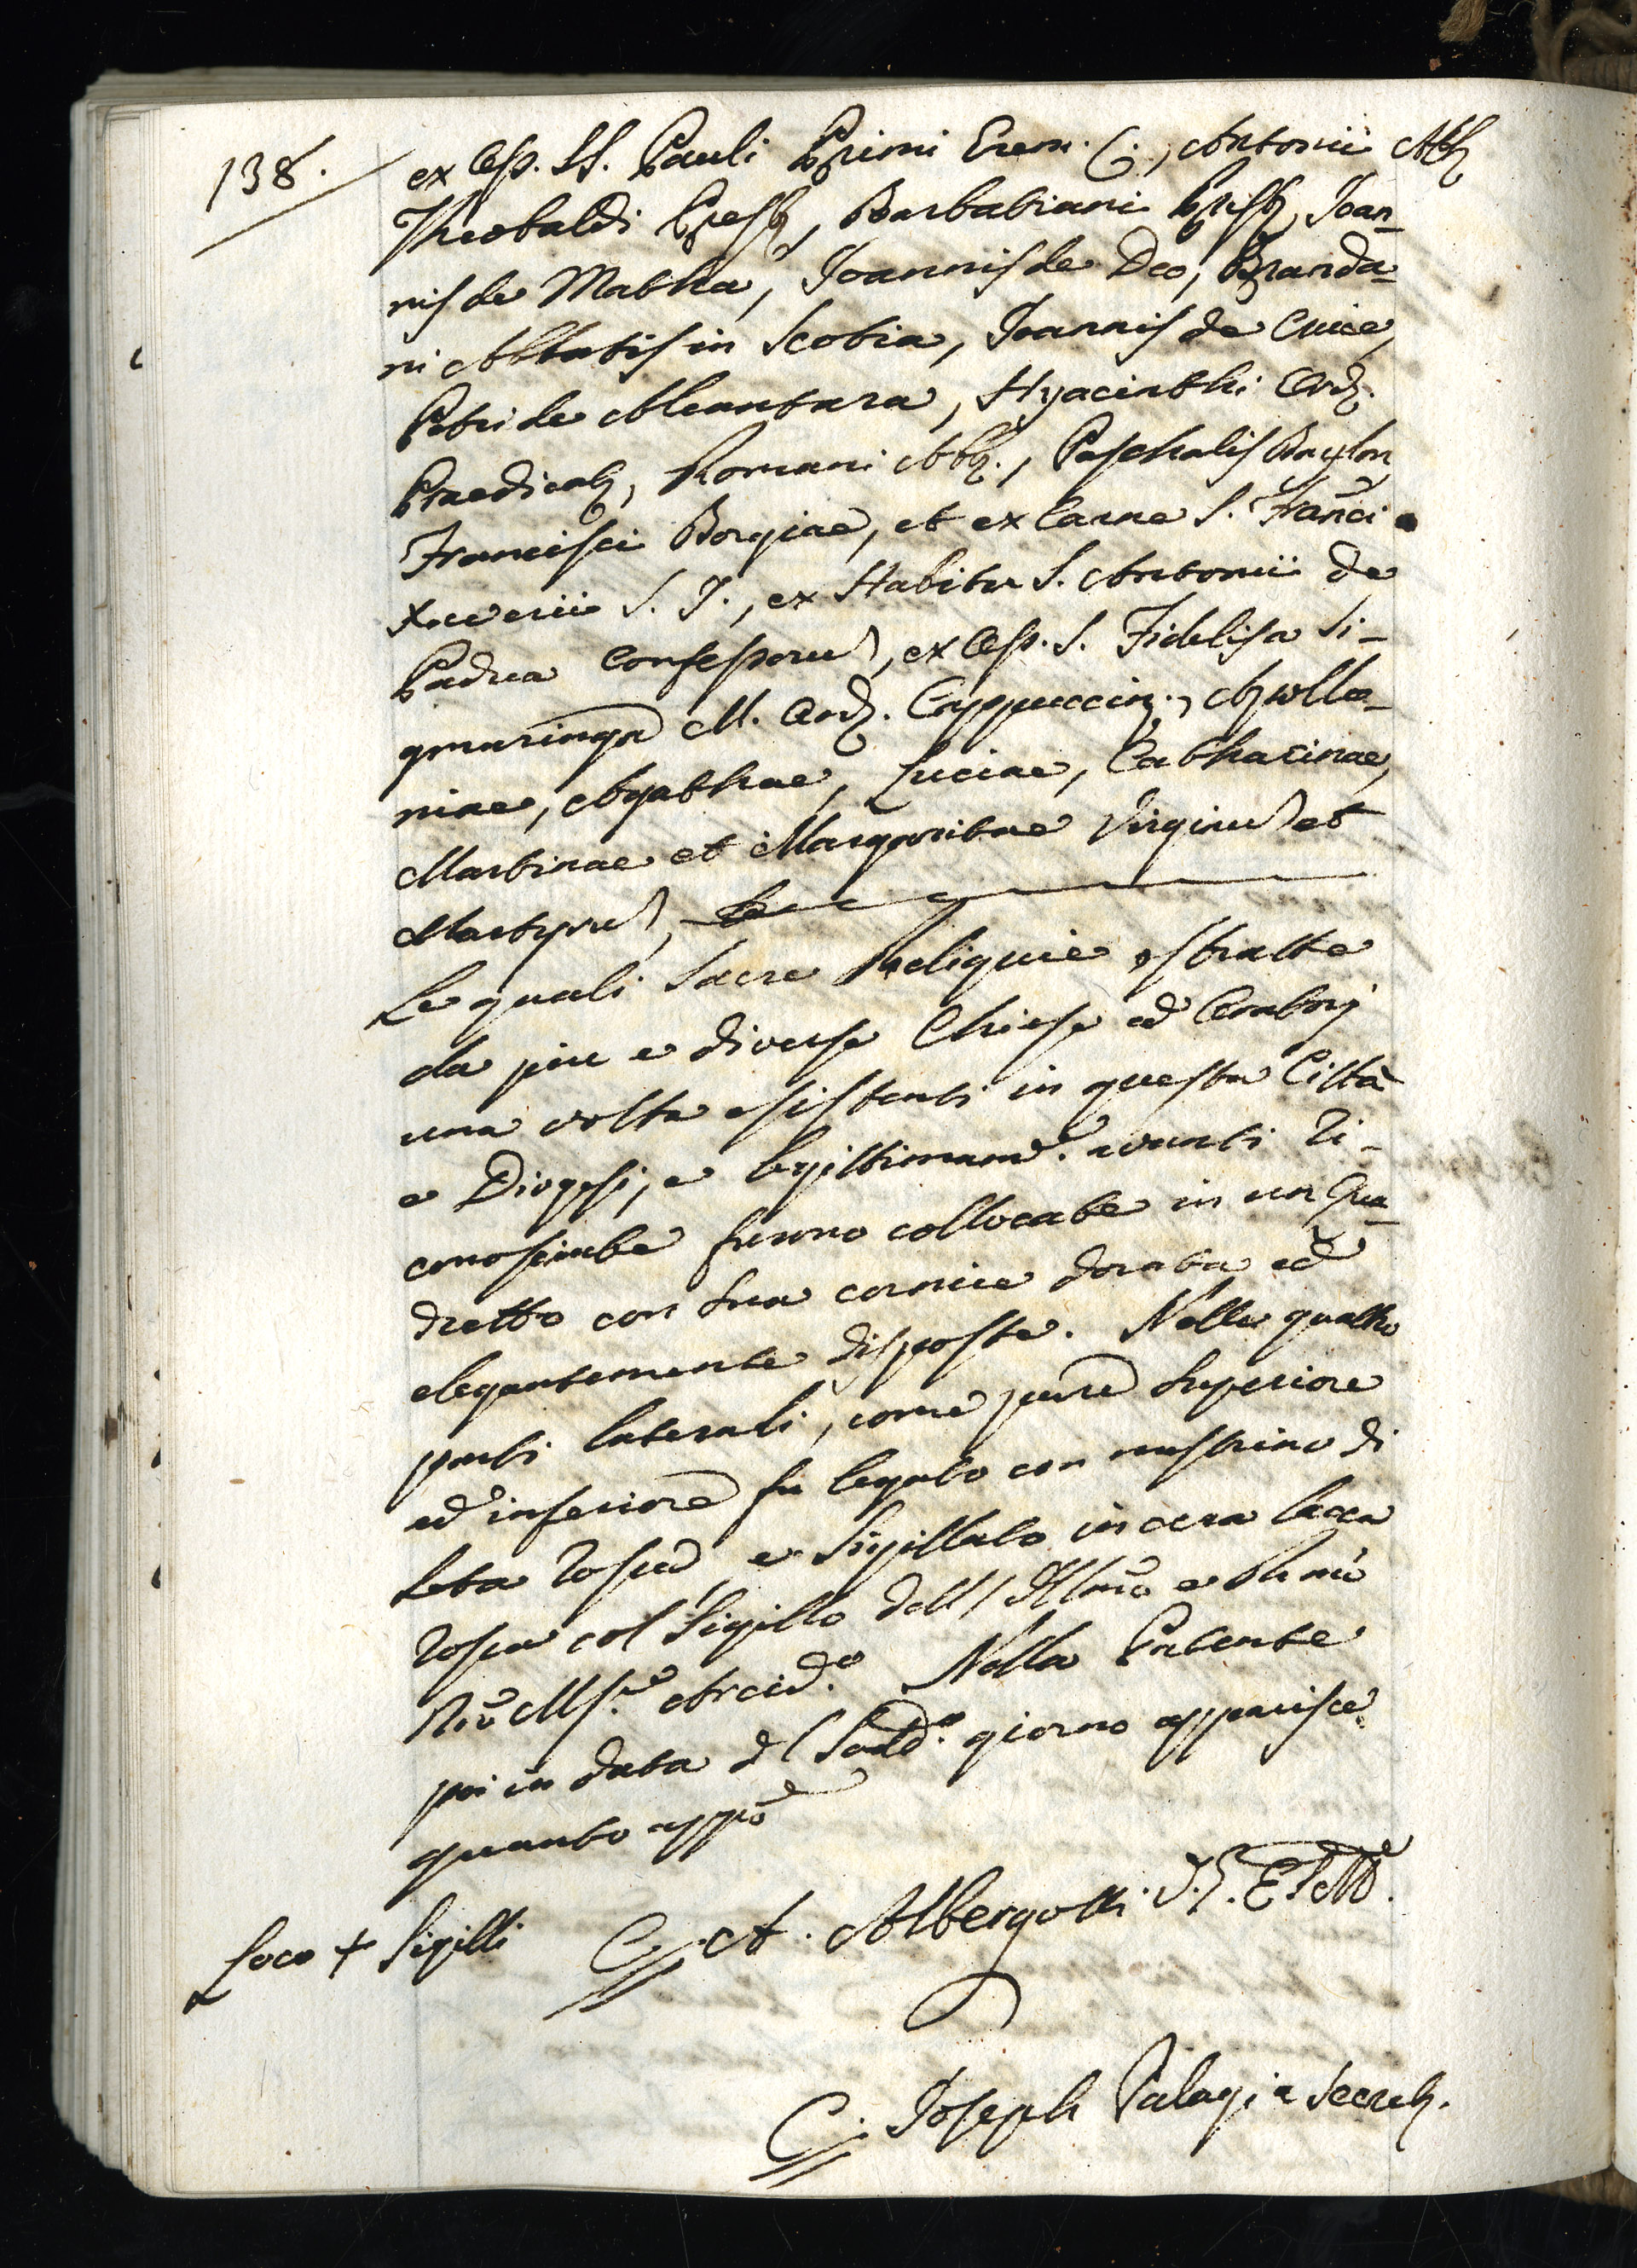 138.
ex Oss. SS. Pauli Primi Erem. C., Antonii Abb
Theobaldi Presb, Barbatiani Presb, Joan-
nis de Matha, Joannis de Deo, Branda-
ni Abbatis in Scotia, Joannis de Cruce,
Petri de Alcantara, Hyacinthi Ord.
Praedicat, Romani Abb., Paschalis Baylon
Francisci Borgiae, et ex Carne S. Franci
Xaverii S. J., ex Habitu S. Antonii de
Padua Confessoru, ex Oss. S. Fidelis a Si-
gmaringa M. Ord. Cappuccin., Apollo-
niae, Agathae, Luciae, Catharinae,
Martinae et Margaritae Virginu et
Martyru,
Le quali Sacre Reliquie estratte
da piu e diverse Chiese ed Oratorj
una volta esistenti in questa Città
e Diogesi, e legittimame. avanti ri-
conosciute furono collocate in un Qua-
dretto con sua cornice dorata ed
elegantemente disposte. Nelle quattro
parti laterali, come pure superiore
ed inferiore fu legato con nastrino di
seta rosso, e Sigillato in cera lacca
rossa col Sigillo dell' Illmo e Rmo
Mre Arcid.o Nella Patente
poi in data dl Sudd.o giorno apparisce
quanto appo
Loco + Sigilli C. A. Albergotti V. G. E
C. Joseph Palagi a Secret.